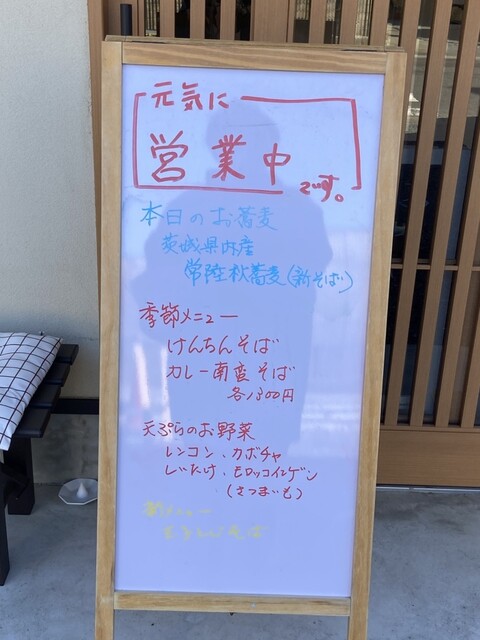 元気に
営業中
です。
本日のお蕎麦
茨城県内産
常陸秋蕎麦(新そば)
季節メニュー
けんちんそば
カレー南蛮そば
各1300円
天ぷらのお野菜
レンコン、カボチャ
しいたけ、モロッコインゲン
(さつまいも)
新メニュー